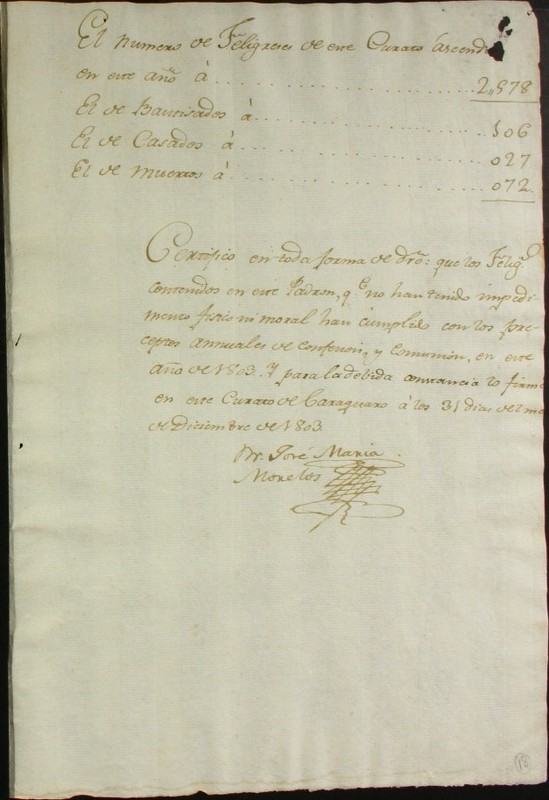 El numero de Feligreses de este Curato ascendio
en este año á .......................... 2,,878
El de Bautisados á .......................... 106
El de Casados á .......................... 027
El de Muertos á .......................... 072
Certifico en toda forma de dro: que los Felig.s
contenidos en este Padron, q.e no han tenido impedi
mento fisico ni moral han cumplido con los pre
ceptos annuales de confesion, y Comunion, en este
año de 1803. Y para la debida constancia lo firme
en este Curato de Caraquaro á los 31 dias del mes
de Diciembre de 1803.
Br. José Maria
Morelos